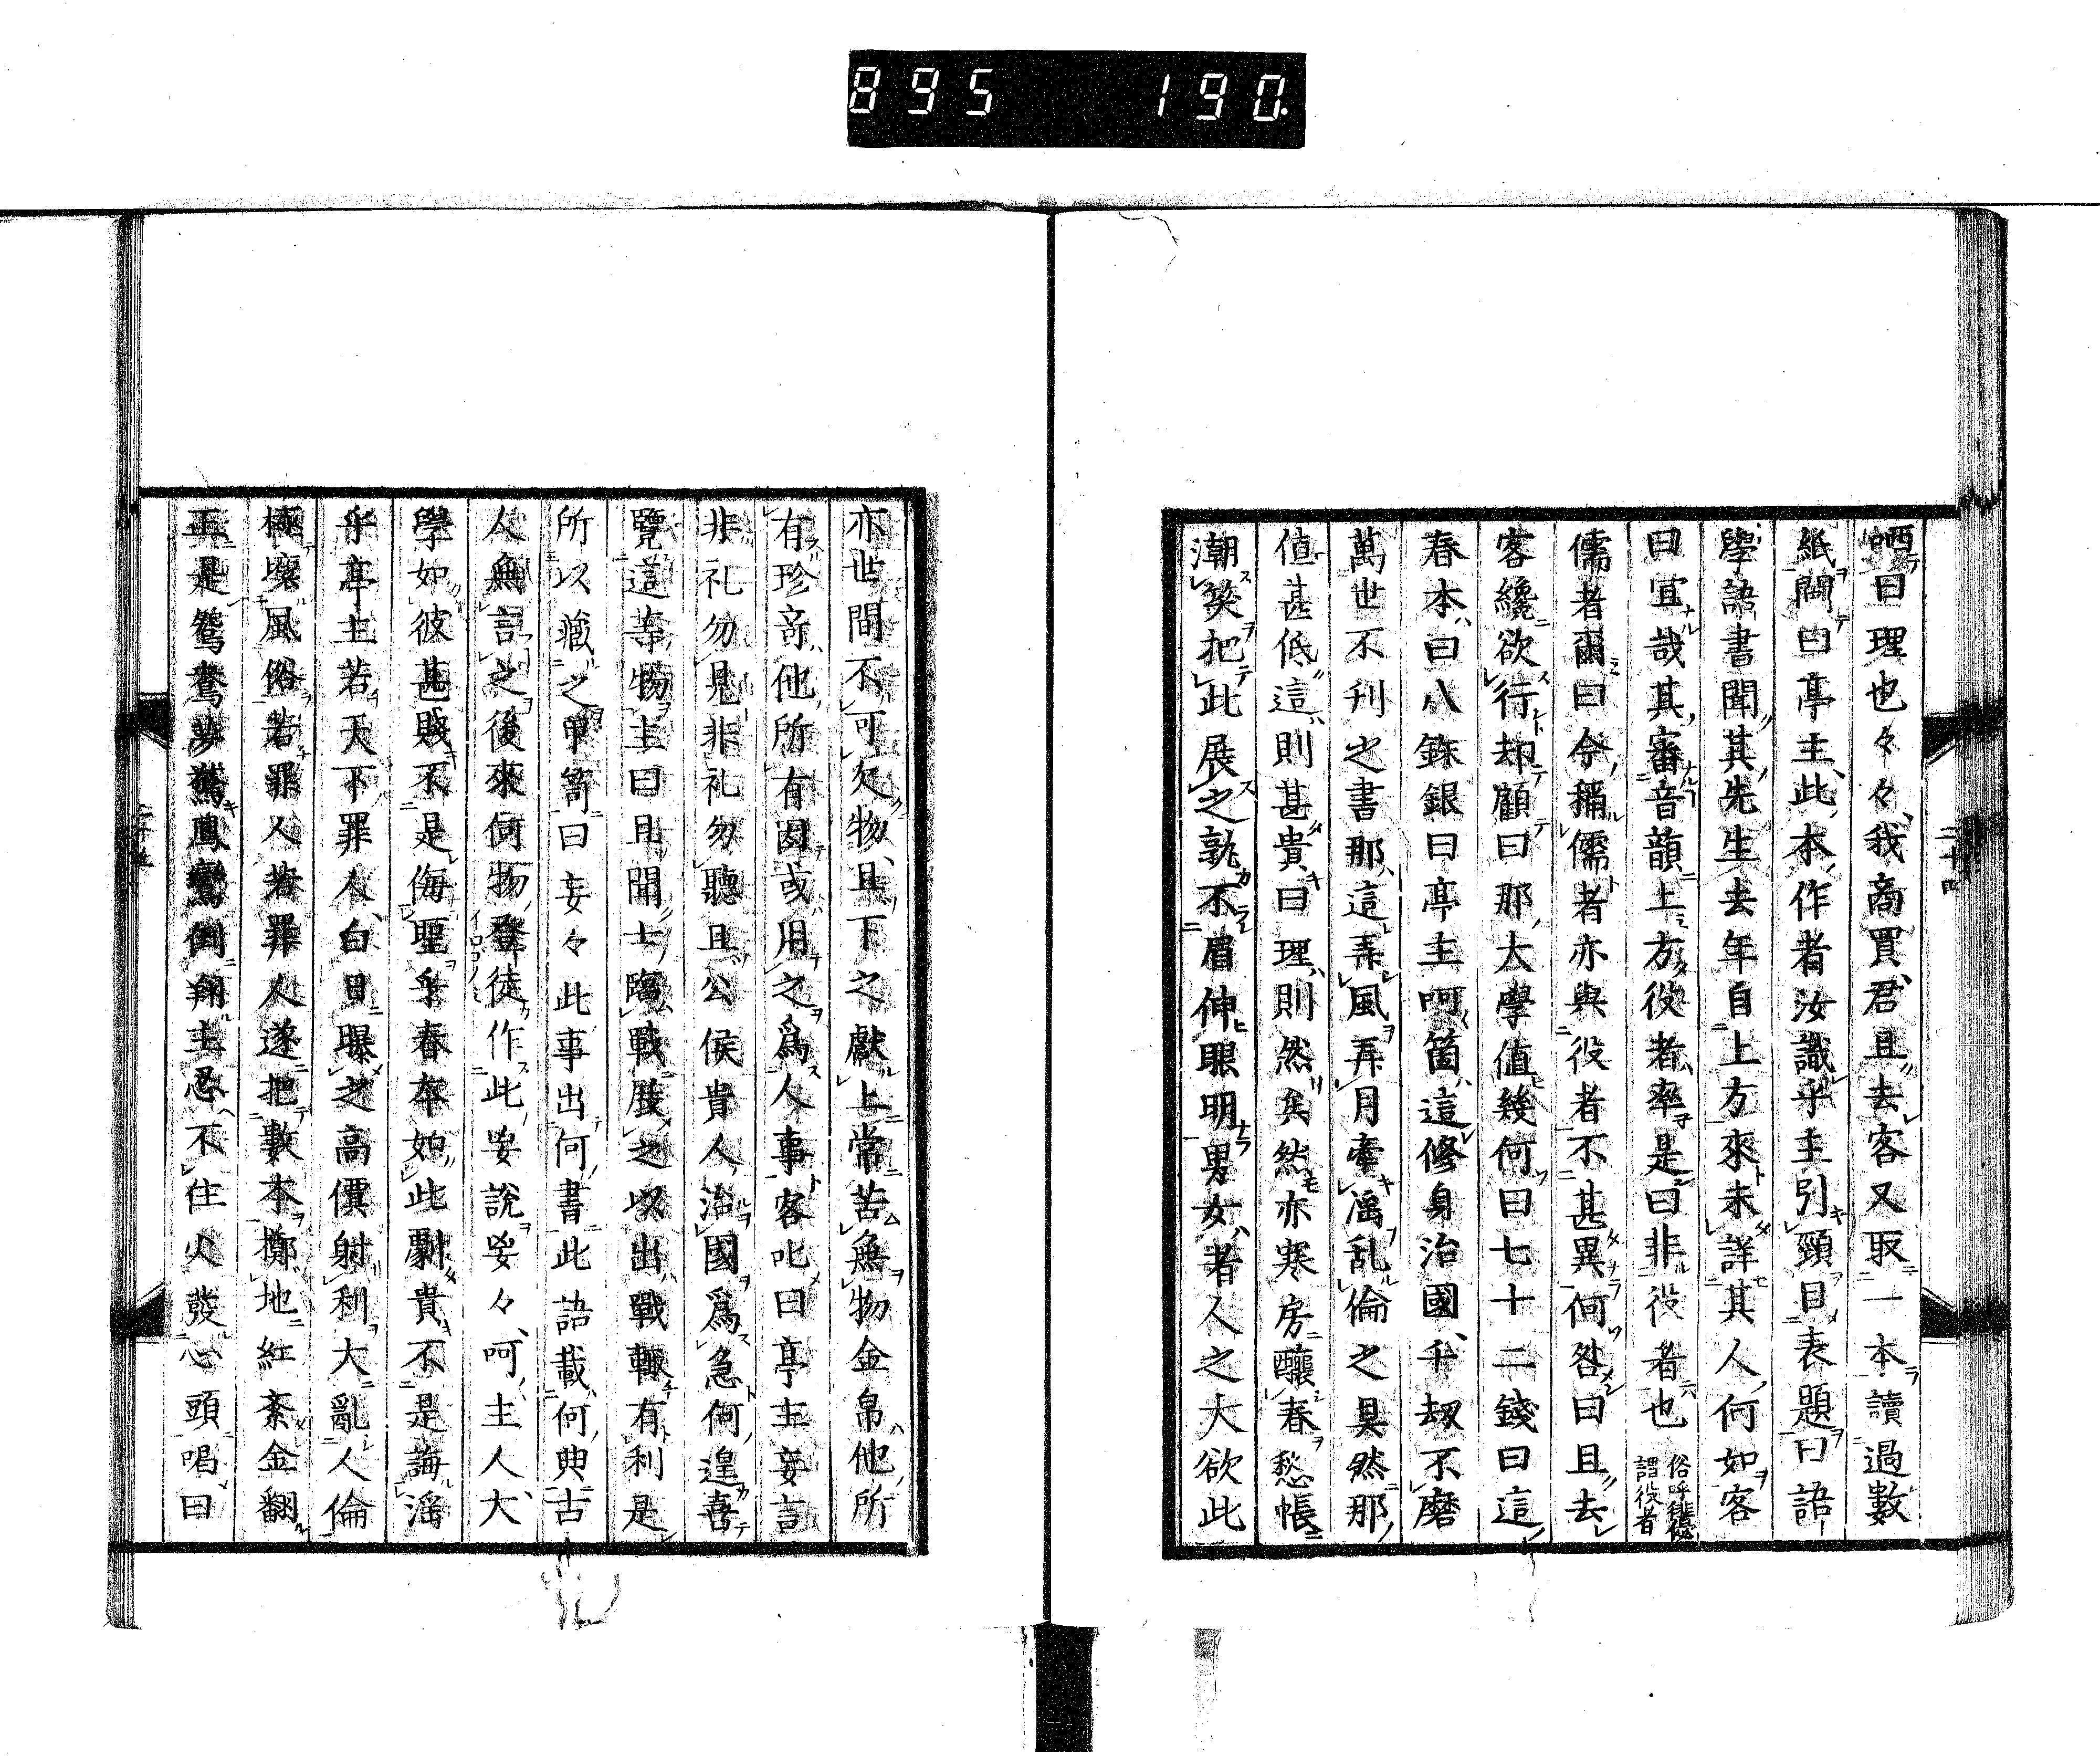 895 190.
哂曰理也々々我商買君且去客又取一本讀過數
紙問曰亭主此本作者汝識乎主引頸目表題曰語
學語書聞其先生去年自上方來未詳其人何如客
曰宜哉其審音韻上方役者率是曰非役者也俗呼俳優謂役者
儒者爾曰今稱儒者亦與役者不甚異何咎曰且去
客纔欲行却顧曰那大學值幾何曰七十二錢曰這
春本曰八銖銀曰亭主呵箇這修身治國千劫不磨
萬世不刋之書那這弄風弄月牽滛乱倫之具然那
值甚低這則甚貴曰理則然矣然亦寒房釀春愁帳
潮笑把此展之孰不眉伸眼明男女者人之大欲此
二十四
亦世間不可欠物且下之獻上常苦無物金帛他所
有珍奇他所有因或用之爲人事客叱曰亭主妄言
非礼勿見非礼勿聽且公侯貴人治國爲急何遑喜
覽這等物主曰且聞士臨戰展之以出戰輙有利是
所以藏之甲笥曰妄々此事出何書此語載何典古
人無言之後來何物登徒作此妄說妄々呵主人大
學如彼甚賤不是侮聖乎春本如此劇貴不是誨滛
乎亭主若天下罪人白日曝之高價射利大亂人倫
極壞風俗若罪人若罪人遂把數本擲地紅紊金翻
正是鴛鴦夢驚鳳鸞倒翔主忍不住火發心頭喝曰